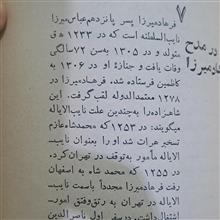 ۷
فرهادمیرزا پسر پانزدهم عباس میرزا
نایب‌السلطنه است که در ۱۲۳۳ ه ق
متولد و در ۱۳۰۵ به‌سن ۷۲ سالگی
وفات یافت و جنازهٔ او در ۱۳۰۶ به
کاظمین فرستاده شد. فرهادمیرزا در
۱۲۷۸ معتمدالدوله لقب گرفت. این
شاهزاده را به‌چندین علت نایب‌الایاله
میگویند: در ۱۲۵۳ که محمدشاه عازم
تسخیر هرات شد او را بعنوان نایب
الایاله مأمور به‌توقف در تهران کرد.
در ۱۲۵۵ که محمد شاه به اصفهان
رفت فرهادمیرزا مجدداً باسمت نایب
الایاله در تهران به رتق‌وفتق امور
اشتغال داشت. در سفر اول ناصرالدین
در مدح